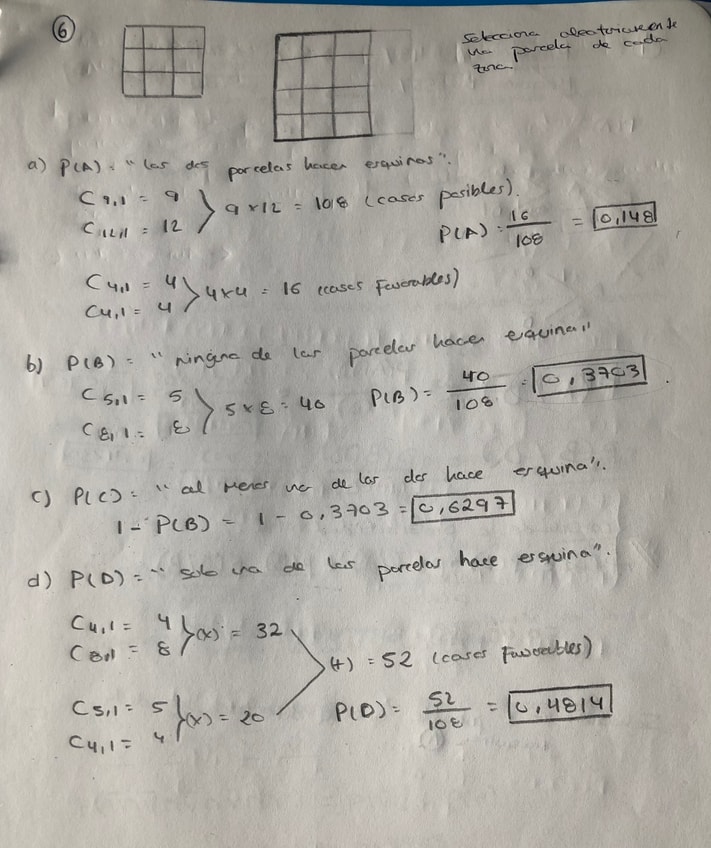 6
Selecciona aleatoriamente
una parcela de cada
zona
a) P(A) = "las dos parcelas hacen esquinas".
C9,1 = 9
C12,1 = 12
9 x 12 = 108 (casos posibles).
P(A) = 16/108 = 0,148
C4,1 = 4
C4,1 = 4
4x4 = 16 (casos favorables)
b) P(B) = "ninguna de las parcelas hacen esquina"
C5,1 = 5
C8,1 = 8
5 x 8 = 40
P(B) = 40/108 = 0,3703
c) P(C) = "al menos una de las dos hace esquina".
1 - P(B) = 1 - 0,3703 = 0,6297
d) P(D) = "solo una de las parcelas hace esquina".
C4,1 = 4
C8,1 = 8
(x) = 32
(+) = 52 (casos favorables)
C5,1 = 5
C4,1 = 4
(x) = 20
P(D) = 52/108 = 0,4814